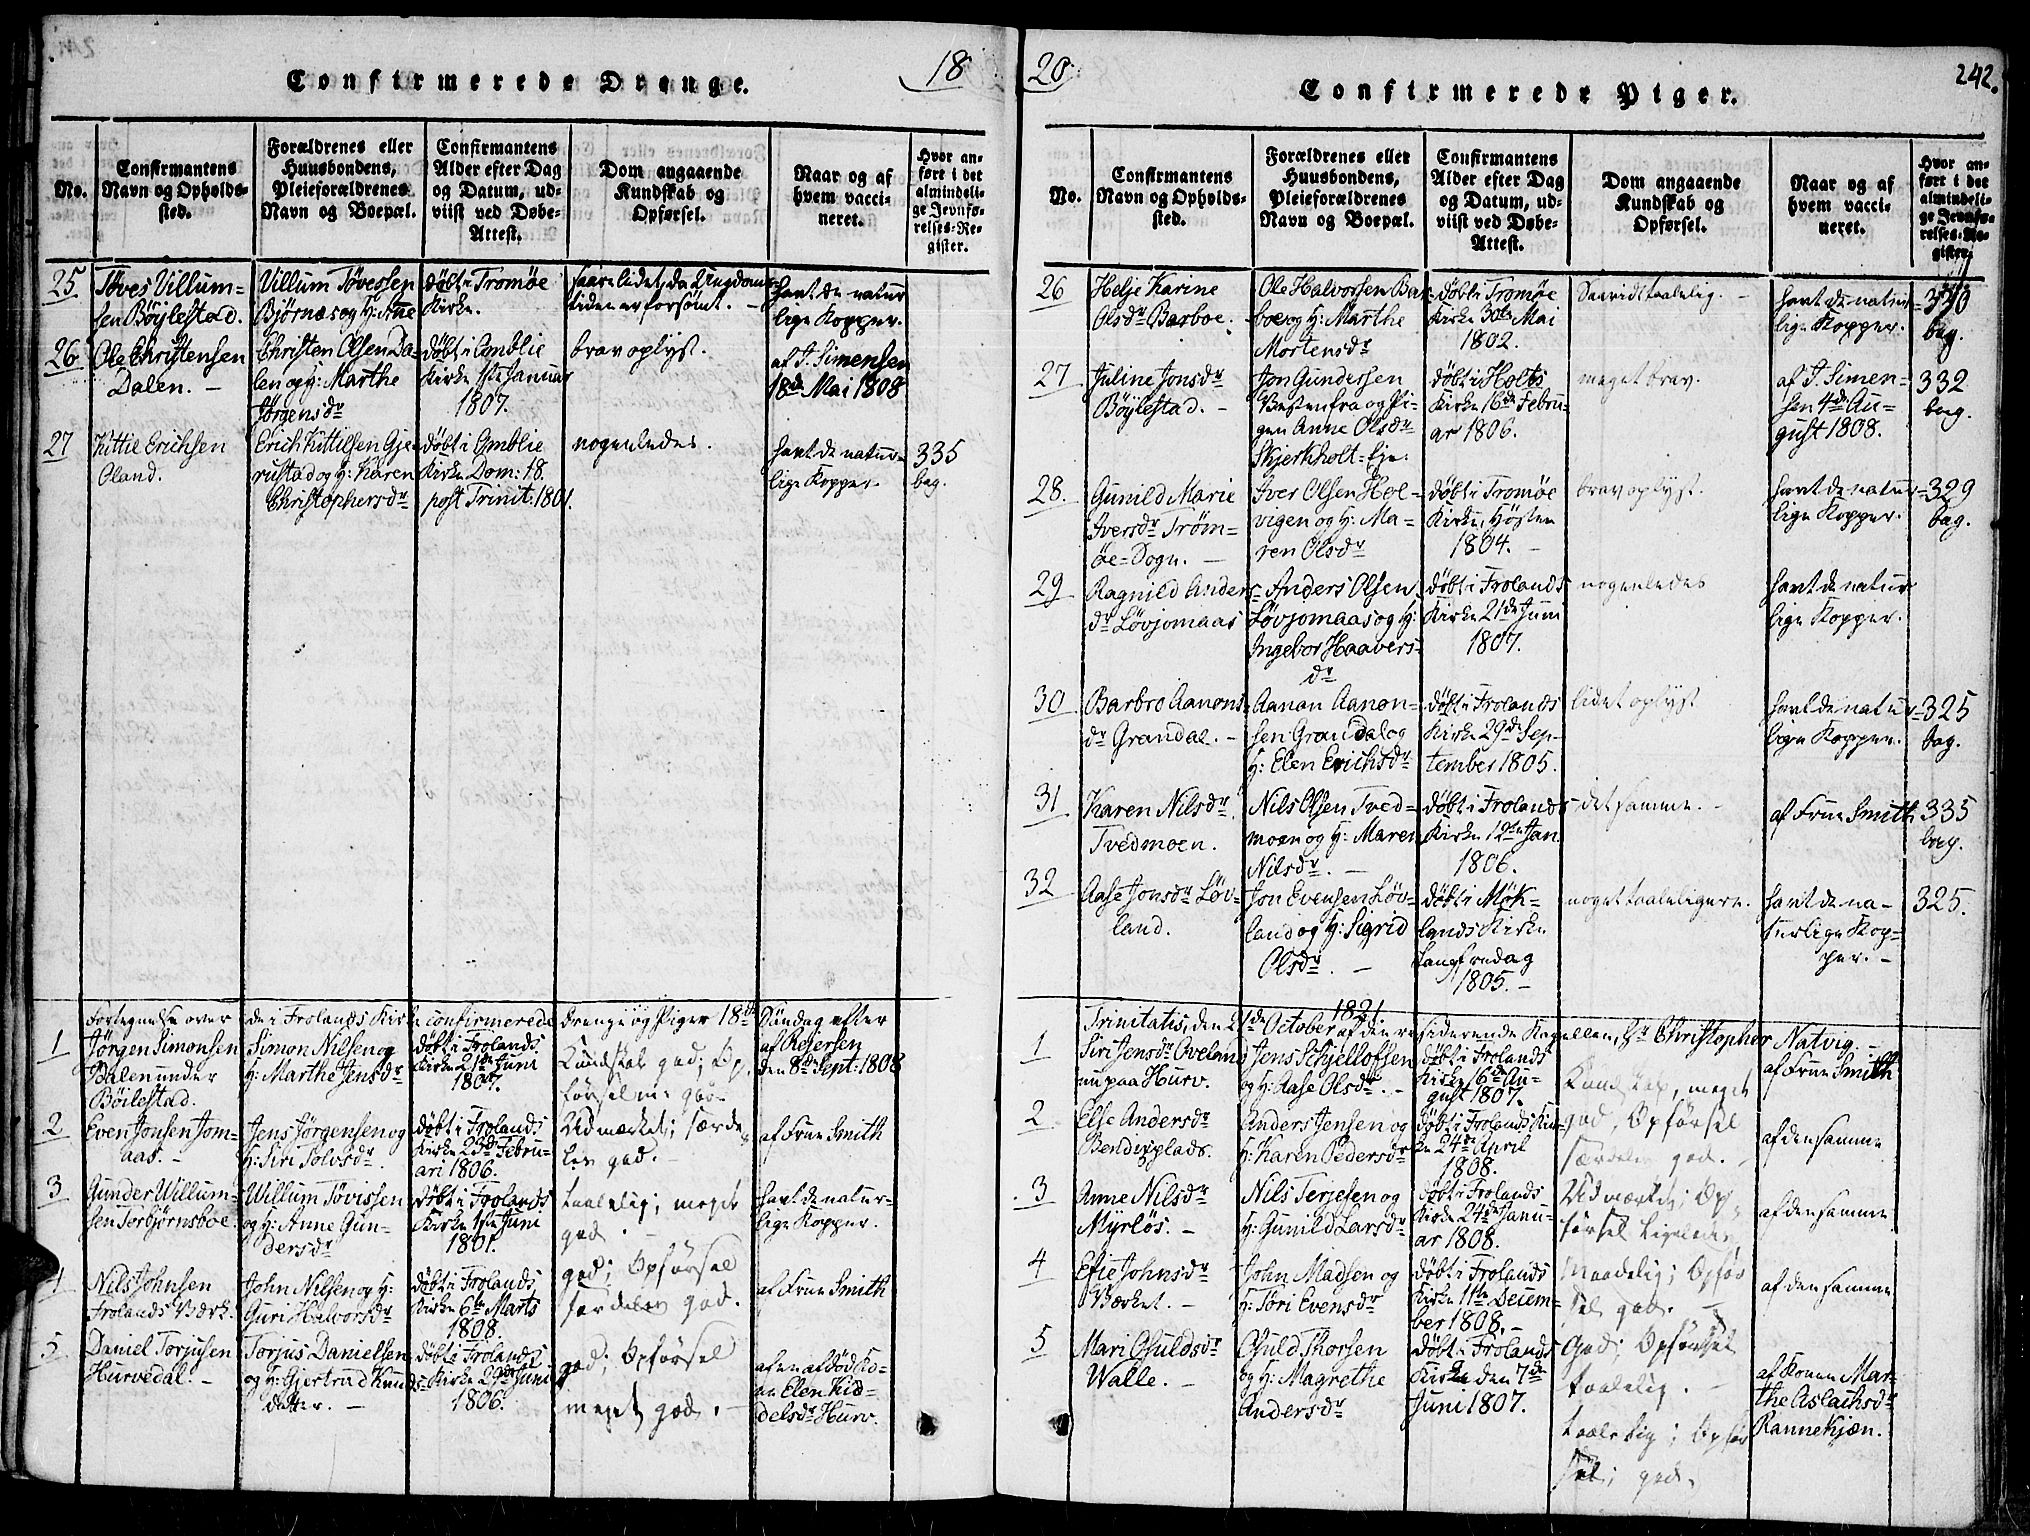 Confirmerede Drenge.
18
No.
Confirmantens
Navn og Opholds-
sted.
Forældrenes eller
Huusbondens,
Pleieforældrenes
Navn og Boepæl.
Confirmantens
Alder efter Dag
og Datum, ud-
viist ved Døbe-
Attest.
Dom angaaende
Kundskab og
Opførsel.
Naar og af
hvem vacci-
neret.
Hvor an-
ført i det
almindeli-
ge Jevnfø-
relses-Re-
gister.
25
Töves Villum-
sen Böylestad.
Villum Tövessen
Bjørnæs og H: Ane
døbt i Tromøe
Kirke.
saare lidet, da Ungdoms-
tiden er forsömt. -
havt de natur
lige Kopper.
26
Ole Christensen
Dalen. -
Christen Olsen Da-
len og H: Marthe
Jørgensdr
døbt i Amblie
Kirke 1ste Januar
1807.
brav oplyst.
af J. Simensen
18de Mai 1808
27
Kittil Erichsen
Oland.
Erich Kittilsen Gje-
rustad og H: Karen
Christophersdr
døbt i Amblie
Kirke Dom: 18.
post Trinit: 1801.
nogenledes.
havt de natur-
lige Kopper.
335
bag.
Fortegnelse over de i Frolands Kirke confirmerede Drenge og Piger 18de Søndag efter
1
Jörgen Simonsen
Dalen under
Böilestad.
Simon Nilsen og
H: Marthe Jensdr
døbt i Frolands
Kirke 21de Juni
1807.
Kundskab god; Op-
førsel
af Reiersen
den 8de Sept: 1808
2
Even Jonsen Jom-
aas. -
Jens Jørgensen og
H: Siri Tolvsdr
døbt i Frolands
Kirke 23de Febru-
ari 1806.
Udmærket; særde-
les god. -
af Frue Smith
3
Gunder Willum-
sen Torbjørnsboe.
Willum Tövissen
og H: Anne Gun-
dersdr
døbt i Frolands
Kirke 1ste Juni
1801.
taalelig; meget
god. -
havt de natur-
lige Kopper.
4
Nils Johnsen
Frolands Værk.
John Nilsen og H:
Guri Halvorsdr
døbt i Frolands
Kirke 6te Marts
1808.
god; Opförsel
særdeles god.
af Frue Smith
5
Daniel Torjusen
Hurvedal. -
Torjus Danielsen
og H: Gjertrud Knuds-
datter. -
døbt i Frolands
Kirke 29de Juni
1806.
god; Opførsel
meget god. -
af en afdød Ko-
ne Elen Kid-
delsdr Hurv.
20
242.
Confirmerede Piger.
No.
Confirmantens
Navn og Opholds-
sted.
Forældrenes eller
Huusbondens,
Pleieforældrenes
Navn og Boepæl.
Confirmantens
Alder efter Dag
og Datum, ud-
viist ved Døbe-
Attest.
Dom angaaende
Kundskab og
Opførsel.
Naar og af
hvem vacci-
neret.
Hvor an-
ført i det
almindeli-
ge Jevnfø-
relses-Re-
gister.
26
Helje Karine
Olsdr Barboe.
Ole Halvorsen Bar-
boe og H: Marthe
Mortensdr
døbt i Tromøe
Kirke 30te Mai
1802.
Saavidt taalelig. -
havt de natur-
lige Kopper.
330
bag.
27
Juline Jonsdr
Böylestad. -
Jon Gundersen
Vestenfra og Pi-
gen Anne Olsdr
Skjerkholt-Eje.
døbt i Holts
Kirke 16de Febru-
ar 1806.
meget brav.
af J. Simen-
sen 4de Au-
gust 1808.
332
bag.
28.
Gunild Marie
Iversdr Tröm-
öe-Sogn. -
Iver Olsen Hoe-
vigen og H: Ma-
ren Olsdr
døbt i Tromøe
Kirke, Høsten
1804. -
brav oplyst.
havt de natur-
lige Kopper.
329
bag.
29
Ragnild Anders-
dr Løvjomaas
Anders Olsen
Løvjomaas og H:
Ingebor Haavers-
dr
døbt i Frolands
Kirke 21de Juni
1807.
nogenledes
havt de natur
lige Kopper.
30
Barbro Aanons-
dr Grandal. -
Aanon Aanon-
sen Grandal og
H: Elen Erichsdr
døbt i Frolands
Kirke 29de Sep-
tember 1805.
lidet oplyst
havt de natur-
lige Kopper.
325
bag.
31
Karen Nilsdr
Tvedmoen.
Nils Olsen Tved-
moen og H: Maren
Nilsdr. -
døbt i Frolands
Kirke 12te Jan.
1806.
det samme. -
af Frue Smith
335
bag.
32
Aase Jonsdr Löv-
land.
Jon Evensen Løv-
land og H: Sigrid
Olsdr. -
døbt i Møk-
lands Kirke
Langfredag
1805. -
noget taaleligere.
havt de na-
turlige Kop-
per. -
325.
1821.
Trinitatis, den 21de October af den residerende Kapellan, Hr Christopher Natvig. -
1
Siri Jensdr Oveland
nu paa Hurv.
Jens Schjelloffsen
og H: Aase Olsdr. -
døbt i Frolands
Kirke 16de Au-
gust 1807.
Kundskab, meget
god, Opførsel
særdeles god. -
af Frue Smith
2
Else Andersdr
Bendixplads.
Anders Jensen og
H: Karen Pedersdr
døbt i Frolands Kir-
ke 24de April
1808.
af den samme
3
Anne Nilsdr
Myrlös. -
Nils Terjesen og
H: Gunild Larsdr
døbt i Frolands
Kirke 24de Janu-
ar 1808.
Udmærket; Op-
førsel ligeledes
af den samme
4
Efie Johnsdr
Værket. -
John Madsen og
H: Töri Evensdr
døbt i Frolands
Kirke 11te Decem-
ber 1808. -
Maadelig; Opför
sel god. -
af den samme
5
Mari Guldsdr
Walle. -
Guld Thorsen
og H: Magrethe
Andersdr
døbt i Frolands
Kirke den 7de
Juni 1807.
God; Opförsel
taalelig. -
taalelig; Opför
sel; god.
af Konen Mar-
the Aslachsdr
Rannekjæn.